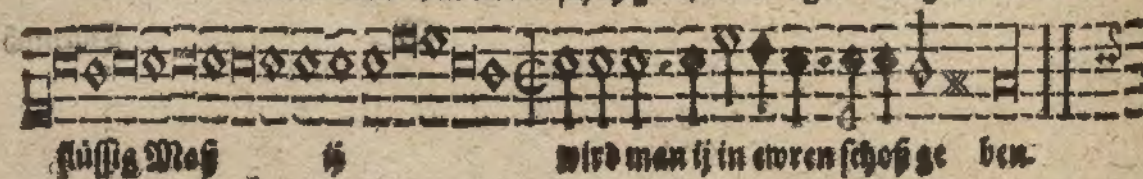 flüssig Maß ij wird man ij in ewren schoß ge ben.